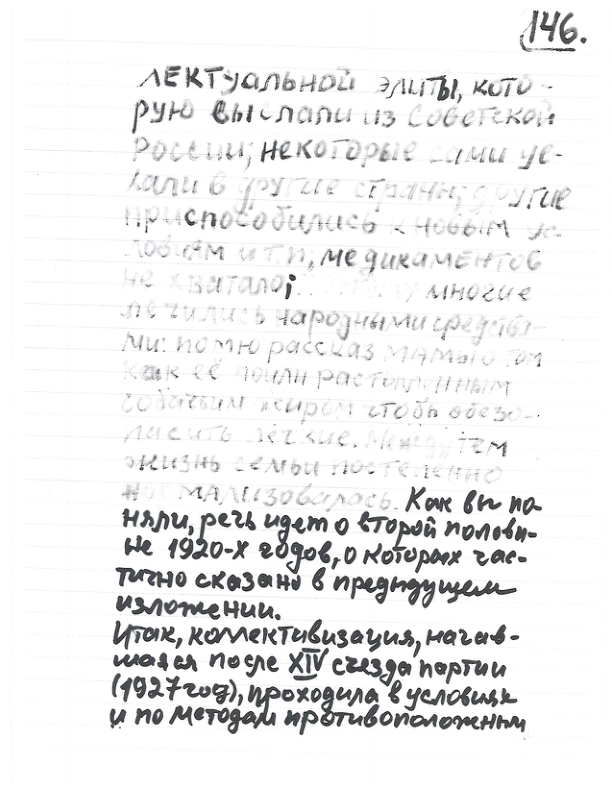 146.
лектуальной элиты, кото-
рую выслали из Советской
России; некоторые сами уе-
хали в другие страны; другие
приспособились к новым ус-
ловиям и т.п., медикаментов
не хватало; многие
лечились народными средства-
ми: помню рассказ мамы о том
как её поили растопленным
собачьим жиром чтобы обезо-
пасить лёгкие. Между тем
жизнь семьи постепенно
нормализовалась. Как вы по-
няли, речь идет о второй полови-
не 1920-х годов, о которых час-
тично сказано в предыдущем
изложении.
Итак, коллективизация, начав-
шаяся после XIV съезда партии
(1927 год), проходила в условиях
и по методам противоположным